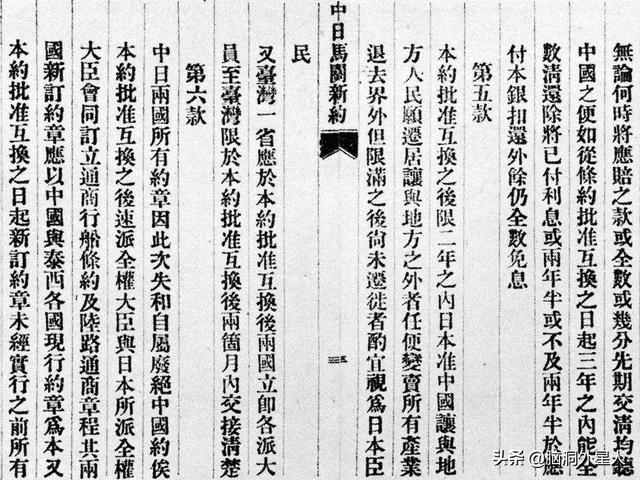 無論何時將應賠之款或全數或幾分先期交清均聽
中國之便如從條約批准互換之日起三年之內能全
數清還除將已付利息或兩年半或不及兩年半於應
付本銀扣還外餘仍全數免息
第五款
本約批准互換之後限二年之內日本准中國讓與地
方人民願遷居讓與地方之外者任便變賣所有產業
退去界外但限滿之後尙未遷徙者酌宜視爲日本臣
中日馬關新約
三
民
又臺灣一省應於本約批准互換後兩國立卽各派大
員至臺灣限於本約批准互換後兩箇月內交接清楚
第六款
中日兩國所有約章因此次失和自屬廢絕中國約俟
本約批准互換之後速派全權大臣與日本所派全權
大臣會同訂立通商行船條約及陸路通商章程其兩
國新訂約章應以中國與泰西各國現行約章爲本又
本約批准互換之日起新訂約章未經實行之前所有
头条 @脑洞外星人